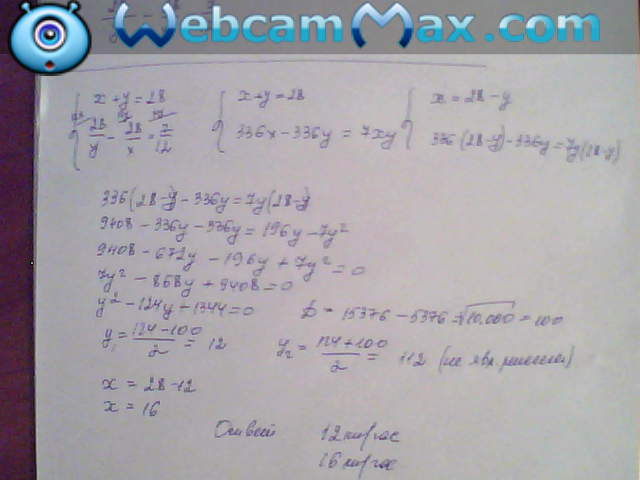 WebcamMax.com
x+y=28
28/y - 28/x = 7/12
x+y=28
336x-336y = 7xy
x = 28-y
336(28-y)-336y=7y(28-y)
336(28-y)-336y=7y(28-y)
9408-336y-336y=196y-7y²
9408-672y-196y+7y²=0
7y²-868y+9408=0
y²-124y+1344=0 D=15376-5376=√10.000=100
y₁=124-100/2=12 y₂=124+100/2=112 (не явл. решением)
x=28-12
x=16
Ответ 12км/час
16км/час